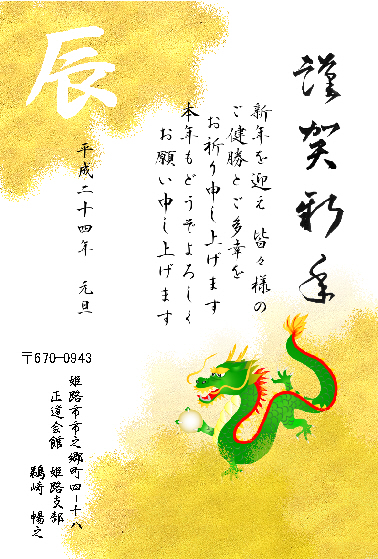 謹賀新年
新年を迎え 皆々様の
ご健勝とご多幸を
お祈り申し上げます
本年もどうぞよろしく
お願い申し上げます
辰
平成二十四年 元旦
〒670-0943
姫路市市之郷町四-十八
正道会館 姫路支部
鵜崎 暢之